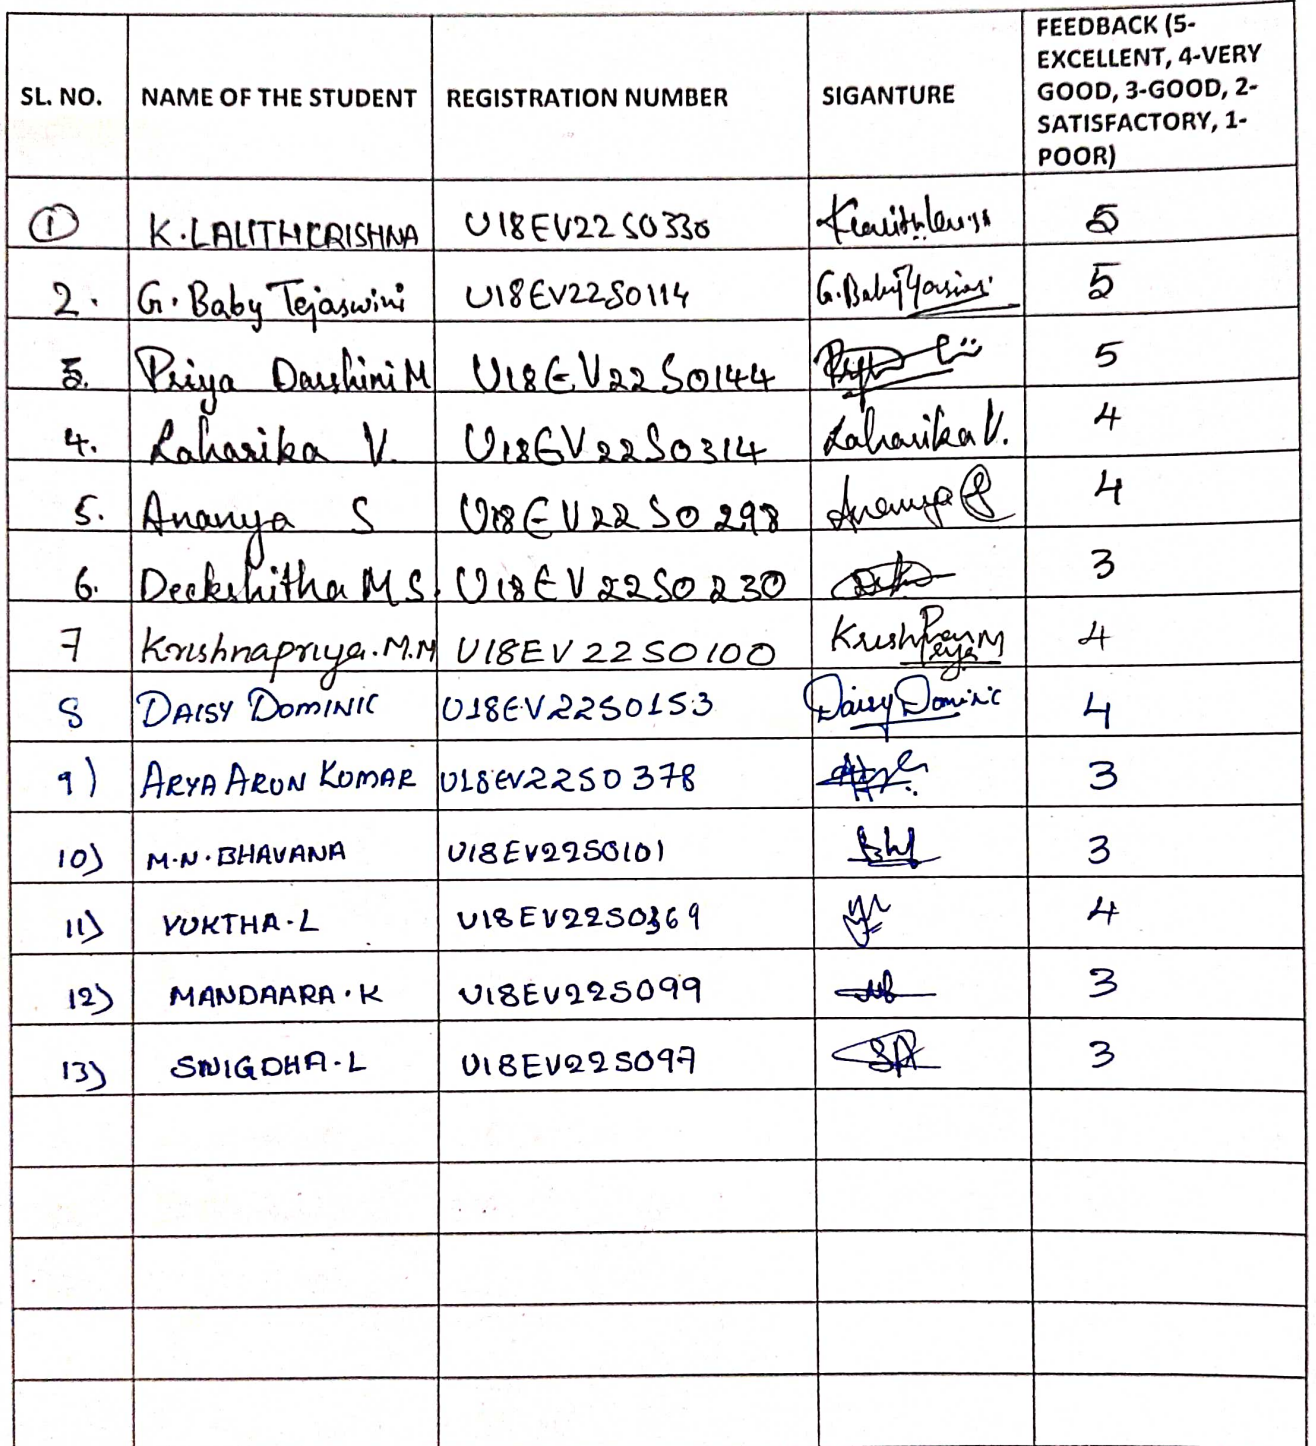 SL. NO. NAME OF THE STUDENT REGISTRATION NUMBER SIGANTURE FEEDBACK (5-
EXCELLENT, 4-VERY
GOOD, 3-GOOD, 2-
SATISFACTORY, 1-
POOR)
1 K.LALITHKRISHNA U18EV22S0330 5
2. G. Baby Tejaswini U18EV22S0114 G.Baby 5
3. Priya Darshini M U18EV22S0144 5
4. Laharika V. U18EV22S0314 Laharika V. 4
5. Ananya S U18EV22S0298 Ananya S 4
6. Deekshitha M S. U18EV22S0230 3
7 Krishnapriya.M.M U18EV22S0100 4
8 DAISY DOMINIC U18EV22S0153 Daisy Dominic 4
9) ARYA ARUN KUMAR U18EV22S0378 3
10) M.N.BHAVANA U18EV22S0101 3
11) YUKTHA.L U18EV22S0369 4
12) MANDAARA.K U18EV22S099 3
13) SNIGDHA.L U18EV22S097 3